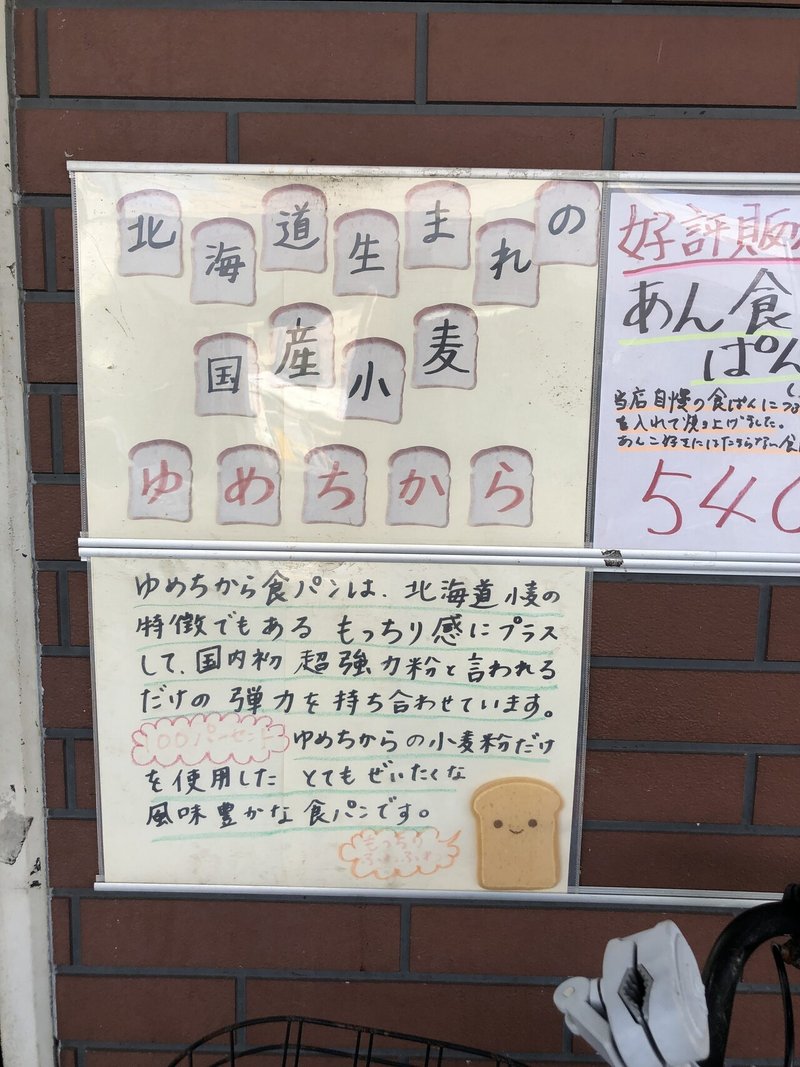 北海道生まれの
国産小麦
ゆめちから
ゆめちから食パンは、北海道小麦の
特徴でもある もっちり感にプラス
して、国内初 超強力粉と言われる
だけの 弾力を持ち合わせています。
100パーセント ゆめちからの小麦粉だけ
を使用した とてもぜいたくな
風味豊かな食パンです。
もっちり
ふわふわ
好評販
あん食
ぱん
当店自慢の食ぱんにつ
を入れて焼き上げました。
あんこ好きにはたまらない食
540